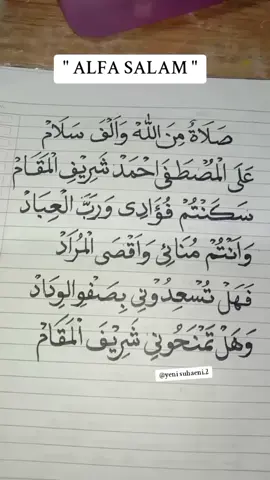 " ALFA SALAM "
صَلَاةٌ مِنَ اللهْ وَاَلْفَ سَلَامْ
عَلَى الْمُصْطَفَى اَحْمَدْ شَرِيْفِ الْمَقَامْ
سَكَنْتُمْ فُؤَادِى وَرَبَّ الْعِبَادْ
وَاَنْتُمْ مُنَائِى وَاَقْصَى الْمُرَادْ
فَهَلْ تُسْعِدُوْنِي بِصَفْوِالْوِدَادْ
وَهَلْ تَمْنَحُوْنِي شَرِيْفَ الْمَقَامْ
@yeni suhaeni.2